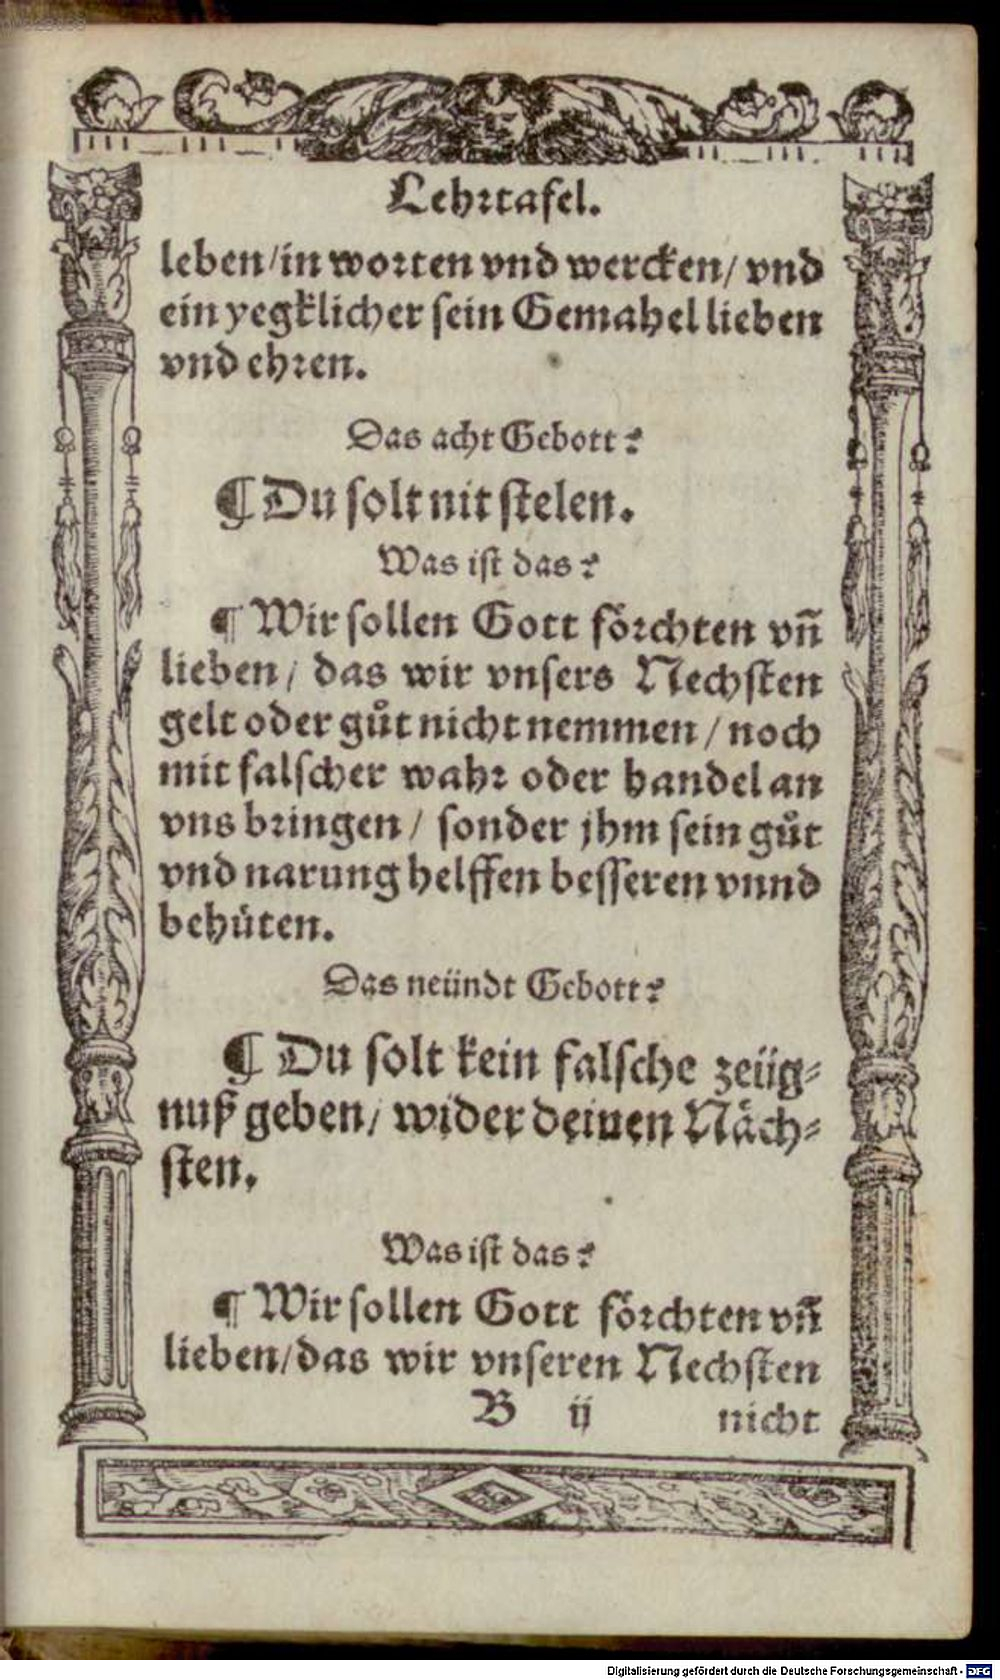 Lehrtafel.
leben/in worten vnd wercken/ vnd
ein yegklicher sein Gemahel lieben
vnd ehren.
Das acht Gebott?
¶ Du solt nit stelen.
Was ist das?
¶ Wir sollen Gott förchten vñ
lieben/ das wir vnsers Nechsten
gelt oder gůt nicht nemmen/ noch
mit falscher wahr oder handel an
vns bringen/ sonder jhm sein gůt
vnd narung helffen besseren vnnd
behüten.
Das neündt Gebott?
¶ Du solt kein falsche zeüg-
nuß geben/ wider deinen Näch-
sten.
Was ist das?
¶ Wir sollen Gott förchten vñ
lieben/das wir vnseren Nechsten
B ij nicht
Digitalisierung gefördert durch die Deutsche Forschungsgemeinschaft - DFG